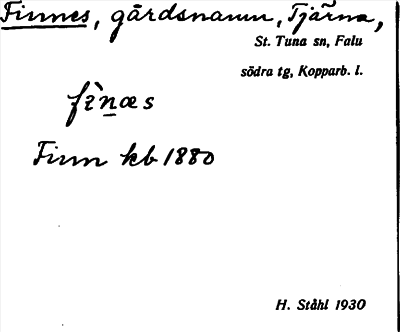 Finnes, gårdsnamn, Tjärna,
St. Tuna sn, Falu
södra tg, Kopparb. l.
fìn̲æs
Finn kb 1880
H. Ståhl 1930